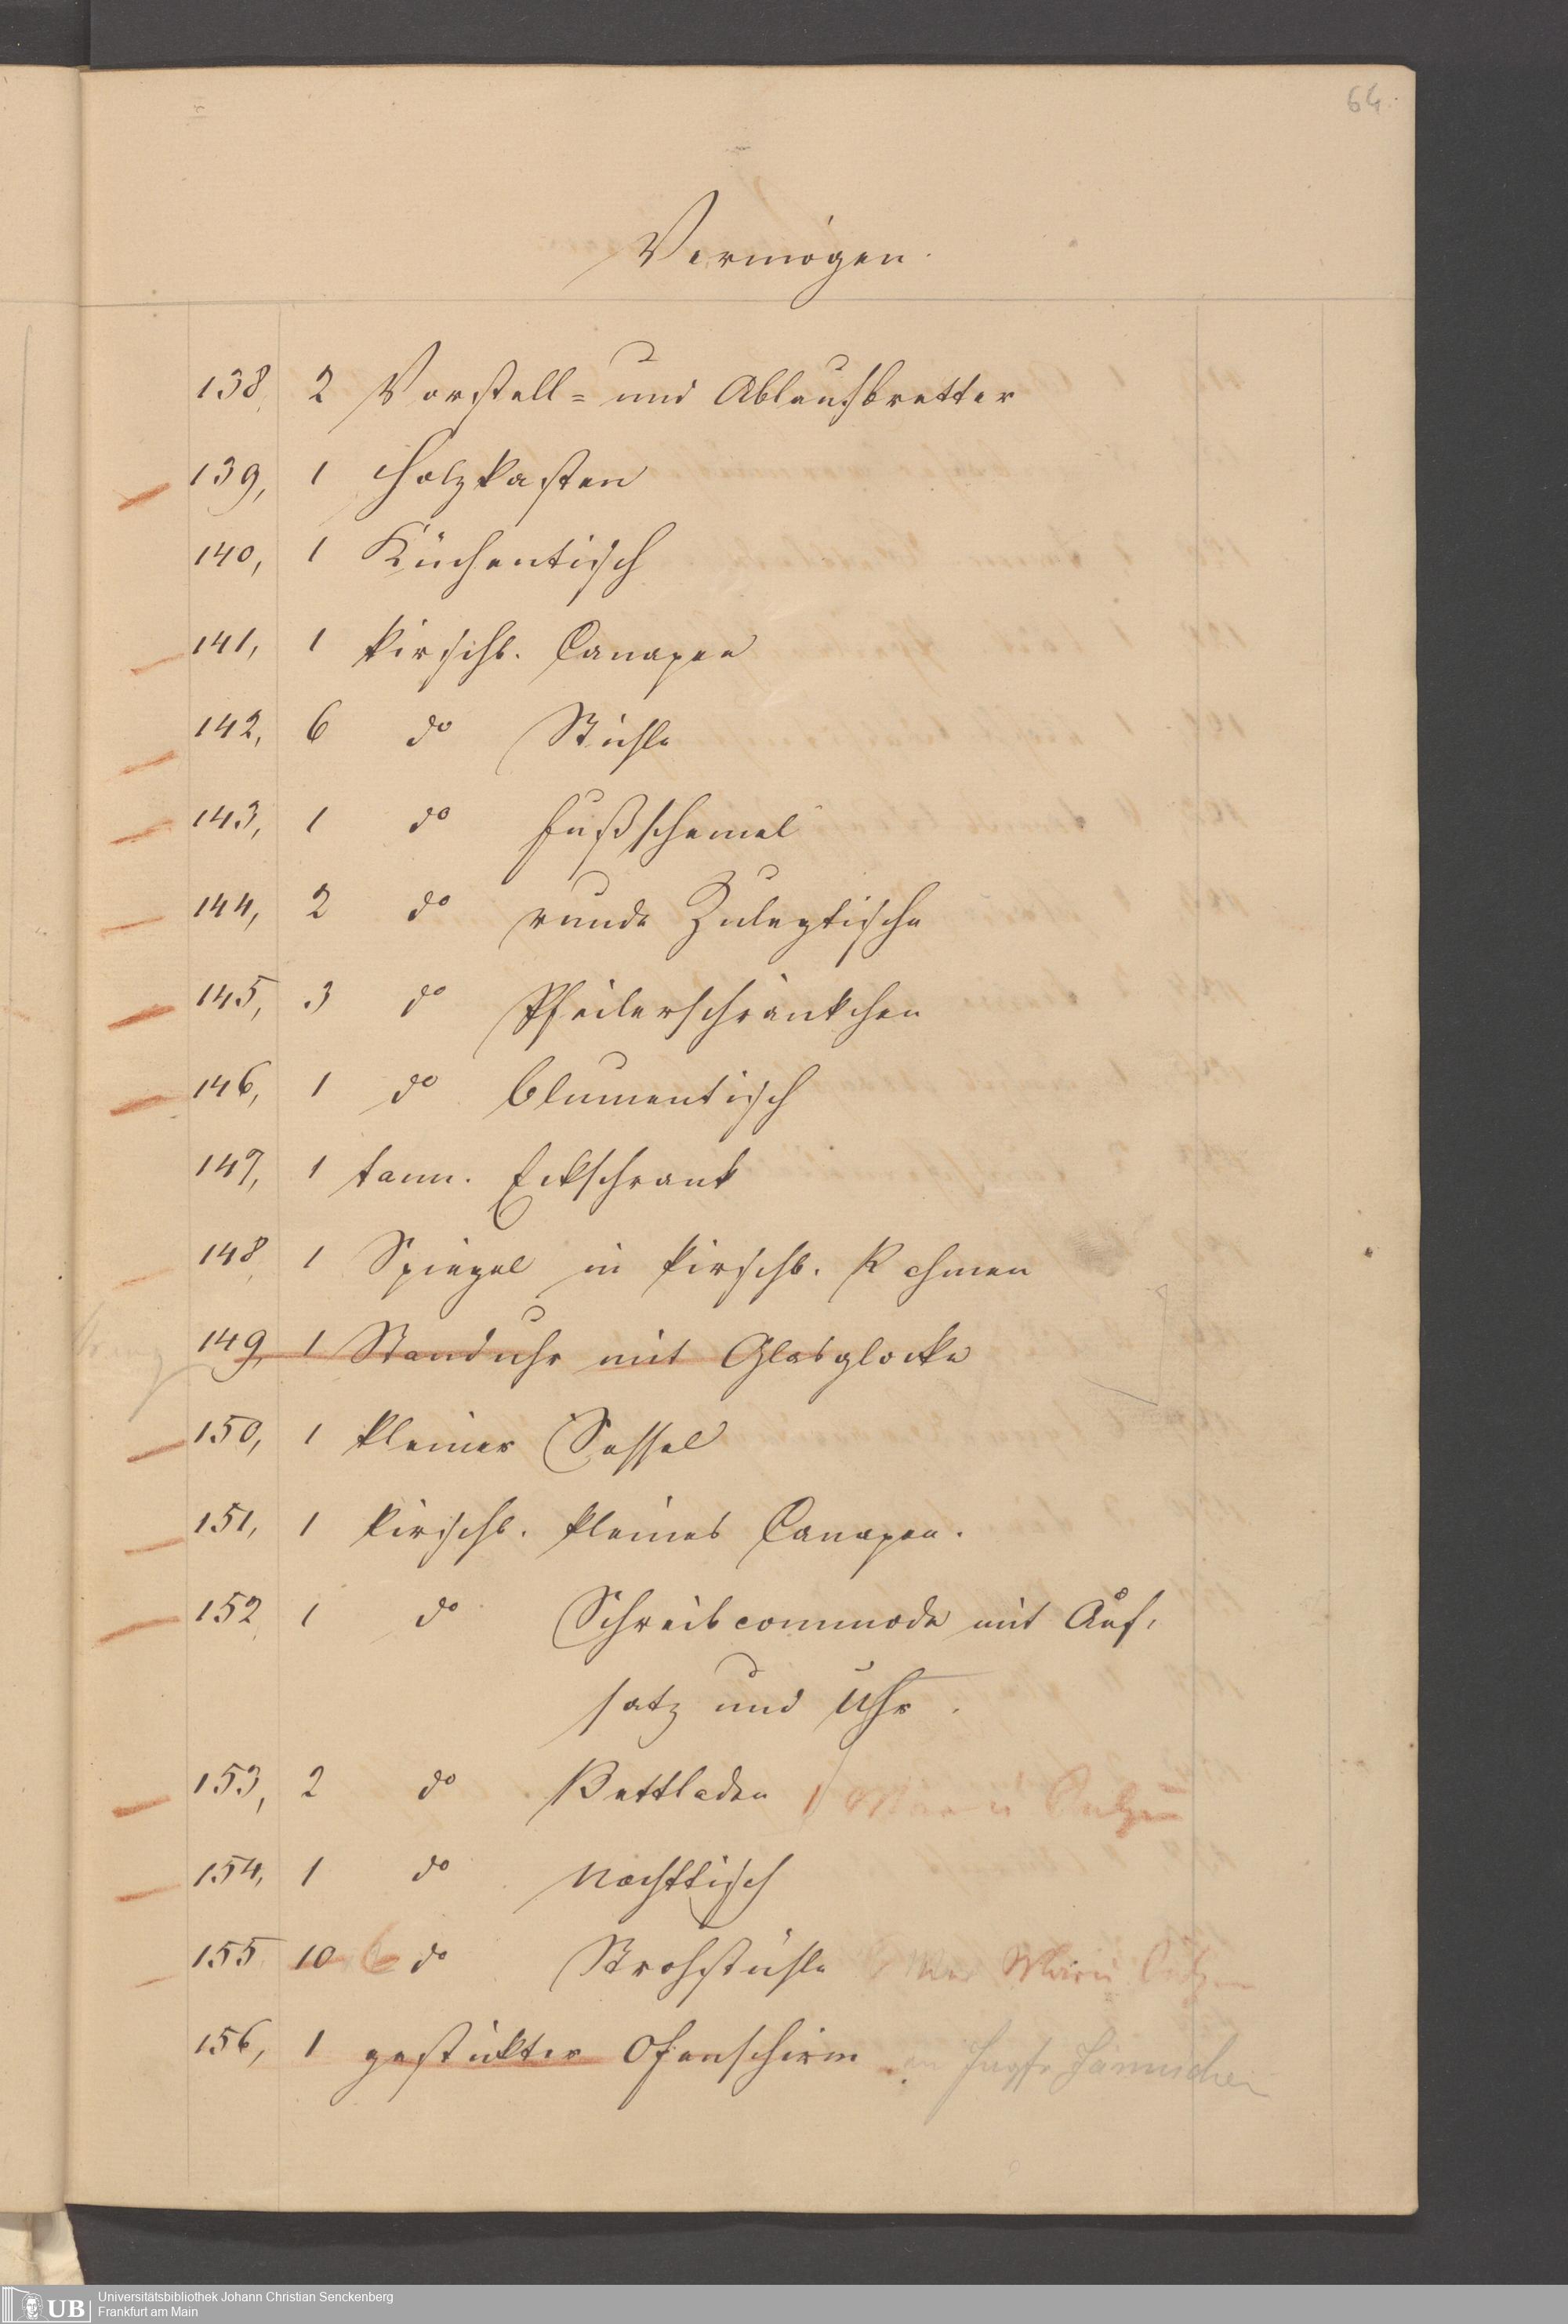 64.
Vermögen.
138, 2 Vorstell= und Ablaufbretter
139, 1 Holzkasten
140, 1 Küchentisch
141, 1 kirschb. Canapee
142, 6 do Stühle
143, 1 do Fußschemel
144, 2 do runde Zulegtische
145, 3 do Pfeilerschränkchen
146, 1 do Blumentisch
147, 1 tann. Eckschrank
148, 1 Spiegel in kirschb. Rahmen
149, 1 Standuhr mit Glasglocke
150, 1 kleiner Sessel
151, 1 kirschb. kleines Canapee.
152, 1 do Schreibcommode mit Auf-
satz und Uhr.
153, 2 do Bettladen 1
154, 1 do Nachttisch
155 10 6 do Strohstühle
156, 1 gestickter Ofenschirm
Universitätsbibliothek Johann Christian Senckenberg
Frankfurt am Main
UB